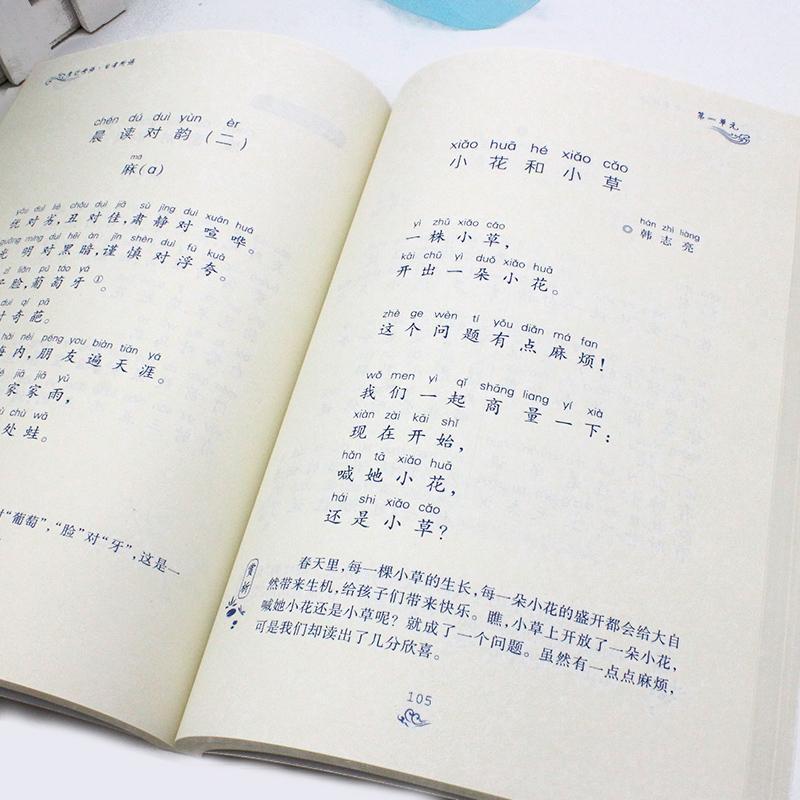 chén dú duì yùn èr
晨读对韵(二)
má
麻(a)
对劣,丑对佳,肃静对喧哗。
明对黑暗,谨慎对浮夸。
脸,葡萄牙①。
奇葩。
内,朋友遍天涯。
家家雨,
处蛙。
“葡萄”,“脸”对“牙”,这是一
第一单元
xiǎo huā hé xiǎo cǎo
小花和小草
hán zhì liàng
韩志亮
yì zhū xiǎo cǎo
一株小草,
kāi chū yì duǒ xiǎo huā
开出一朵小花。
zhè ge wèn tí yǒu diǎn má fan
这个问题有点麻烦!
wǒ men yì qǐ shāng liang yí xià
我们一起商量一下:
xiàn zài kāi shǐ
现在开始,
hǎn tā xiǎo huā
喊她小花,
hái shi xiǎo cǎo
还是小草?
赏析
春天里,每一棵小草的生长,每一朵小花的盛开都会给大自
然带来生机,给孩子们带来快乐。瞧,小草上开放了一朵小花,
喊她小花还是小草呢?就成了一个问题。虽然有一点点麻烦,
可是我们却读出了几分欣喜。
105